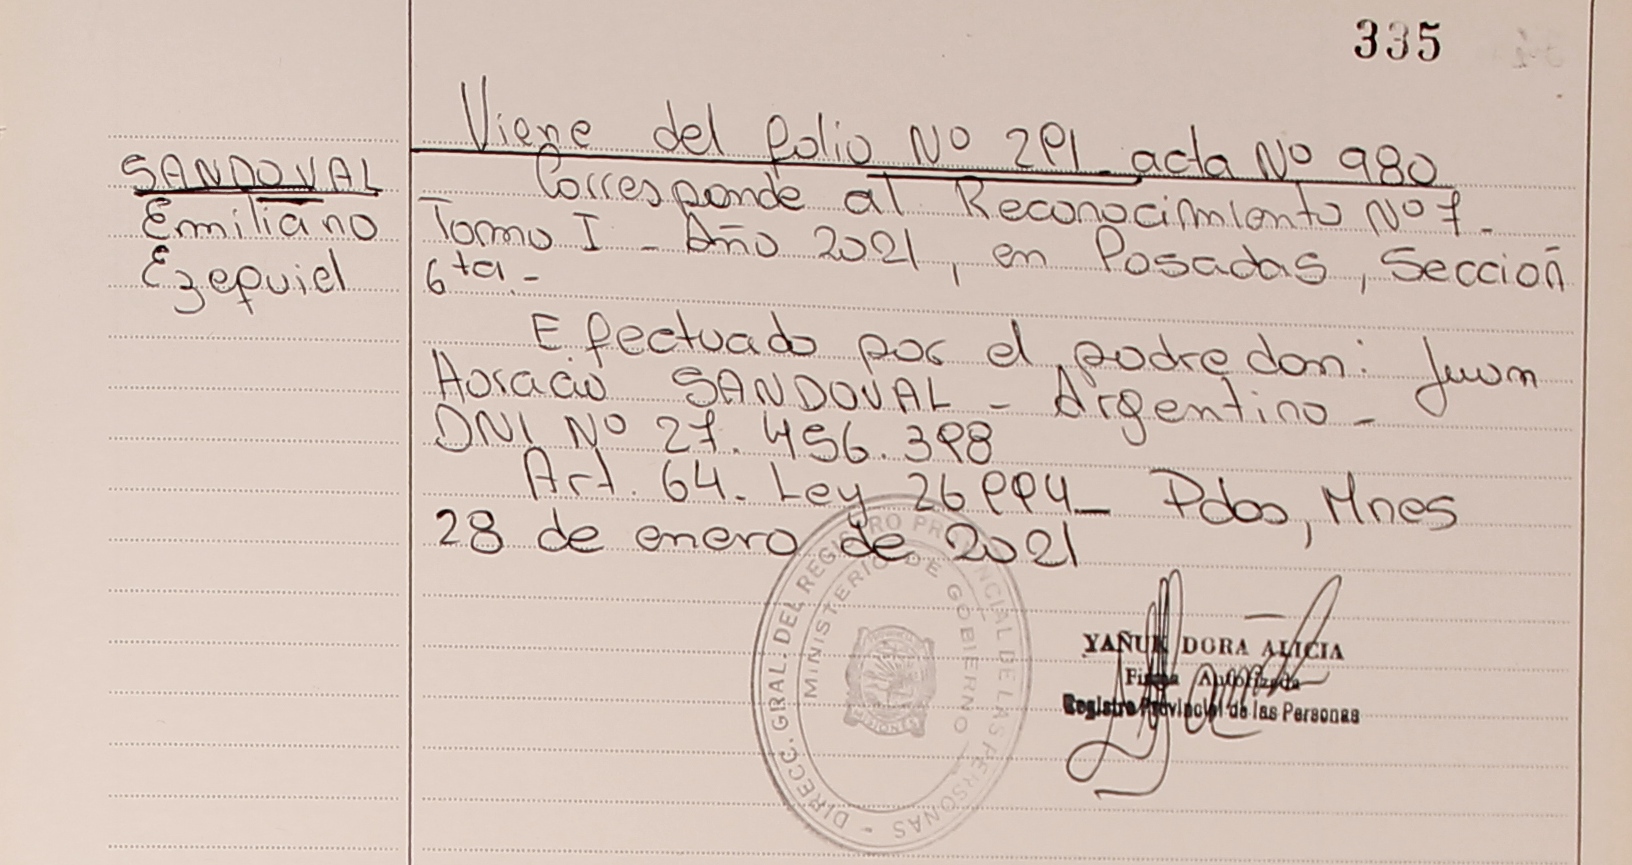 335
Viene del folio Nº 291 acta Nº 980
SANDOVAL
Emiliano
Ezequiel
Corresponde al Reconocimiento Nº 7.
Tomo I - Año 2021, en Posadas, Sección
6ta.-
Efectuado por el padre don: Juan
Horacio SANDOVAL - Argentino -
DNI Nº 27.456.398
Art. 64. Ley 26994_ Pdas, Mnes
28 de enero de 2021
DIRECC. GRAL. DEL REGISTRO PROVINCIAL DE LAS PERSONAS -
MINISTERIO DE GOBIERNO
YAÑUK DORA ALICIA
Firma Autorizada
Registro Provincial de las Personas